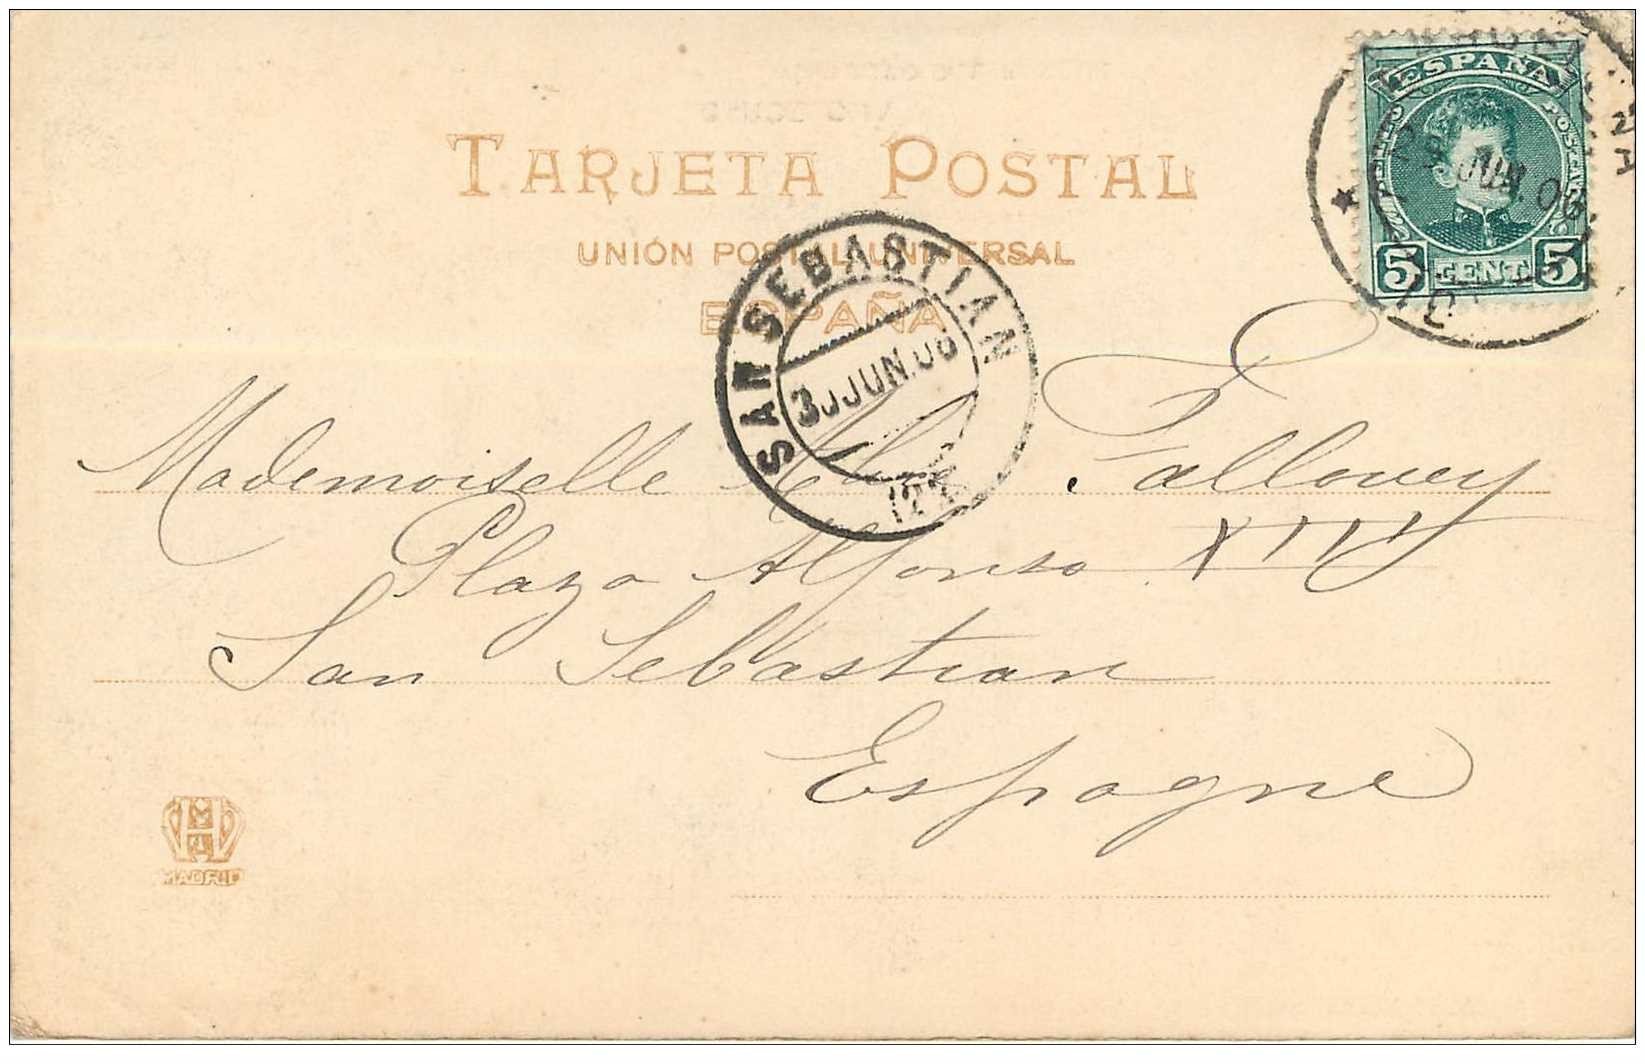 TARJETA POSTAL
UNIÓN POSTAL UNIVERSAL
ESPAÑA
ESPAÑA
5 CENT. 5
JUN. 06
SAN SEBASTIAN
30 JUN. 06
Mademoiselle Fallouey
Plaza Alfonso XIII
San Sebastian
Espagne
MADRID